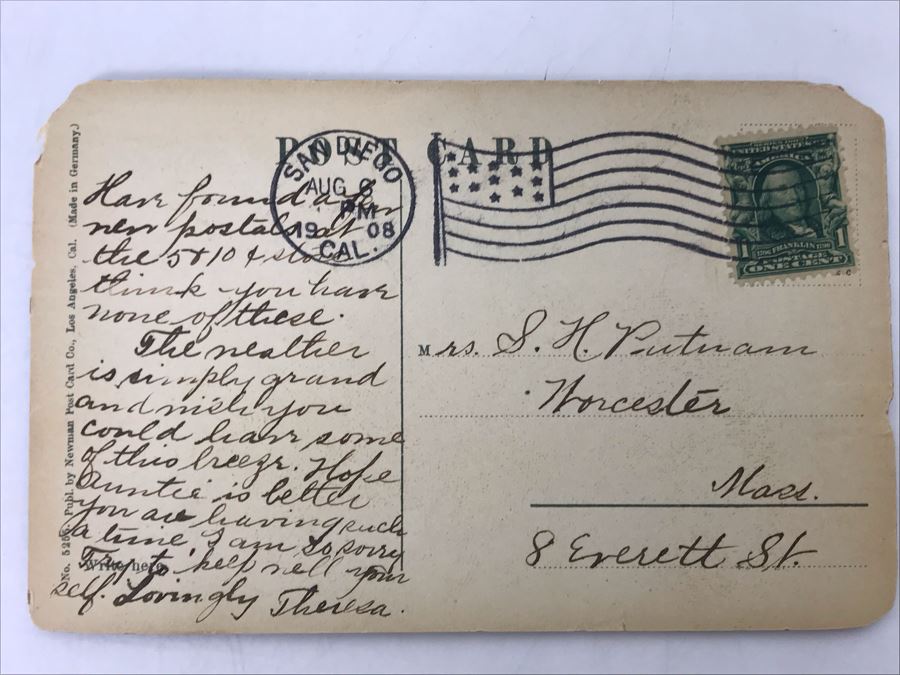 POST CARD
SAN DIEGO
AUG 8
PM
1908
CAL.
UNITED STATES
AMERICA
1706 FRANKLIN 1790
1 1
POSTAGE
ONE CENT
No. 525 Publ. by Newman Post Card Co., Los Angeles, Cal. (Made in Germany.)
Write here
Have found a few
new postals at
the 5 & 10 ¢ store
think you have
none of these.
The weather
is simply grand
and wish you
could have some
of this breeze. Hope
Auntie is better
you are having such
a time I am so sorry
Try to keep well your
self. Lovingly Theresa.
Mrs. S. H. Putnam
Worcester
Mass.
8 Everett St.